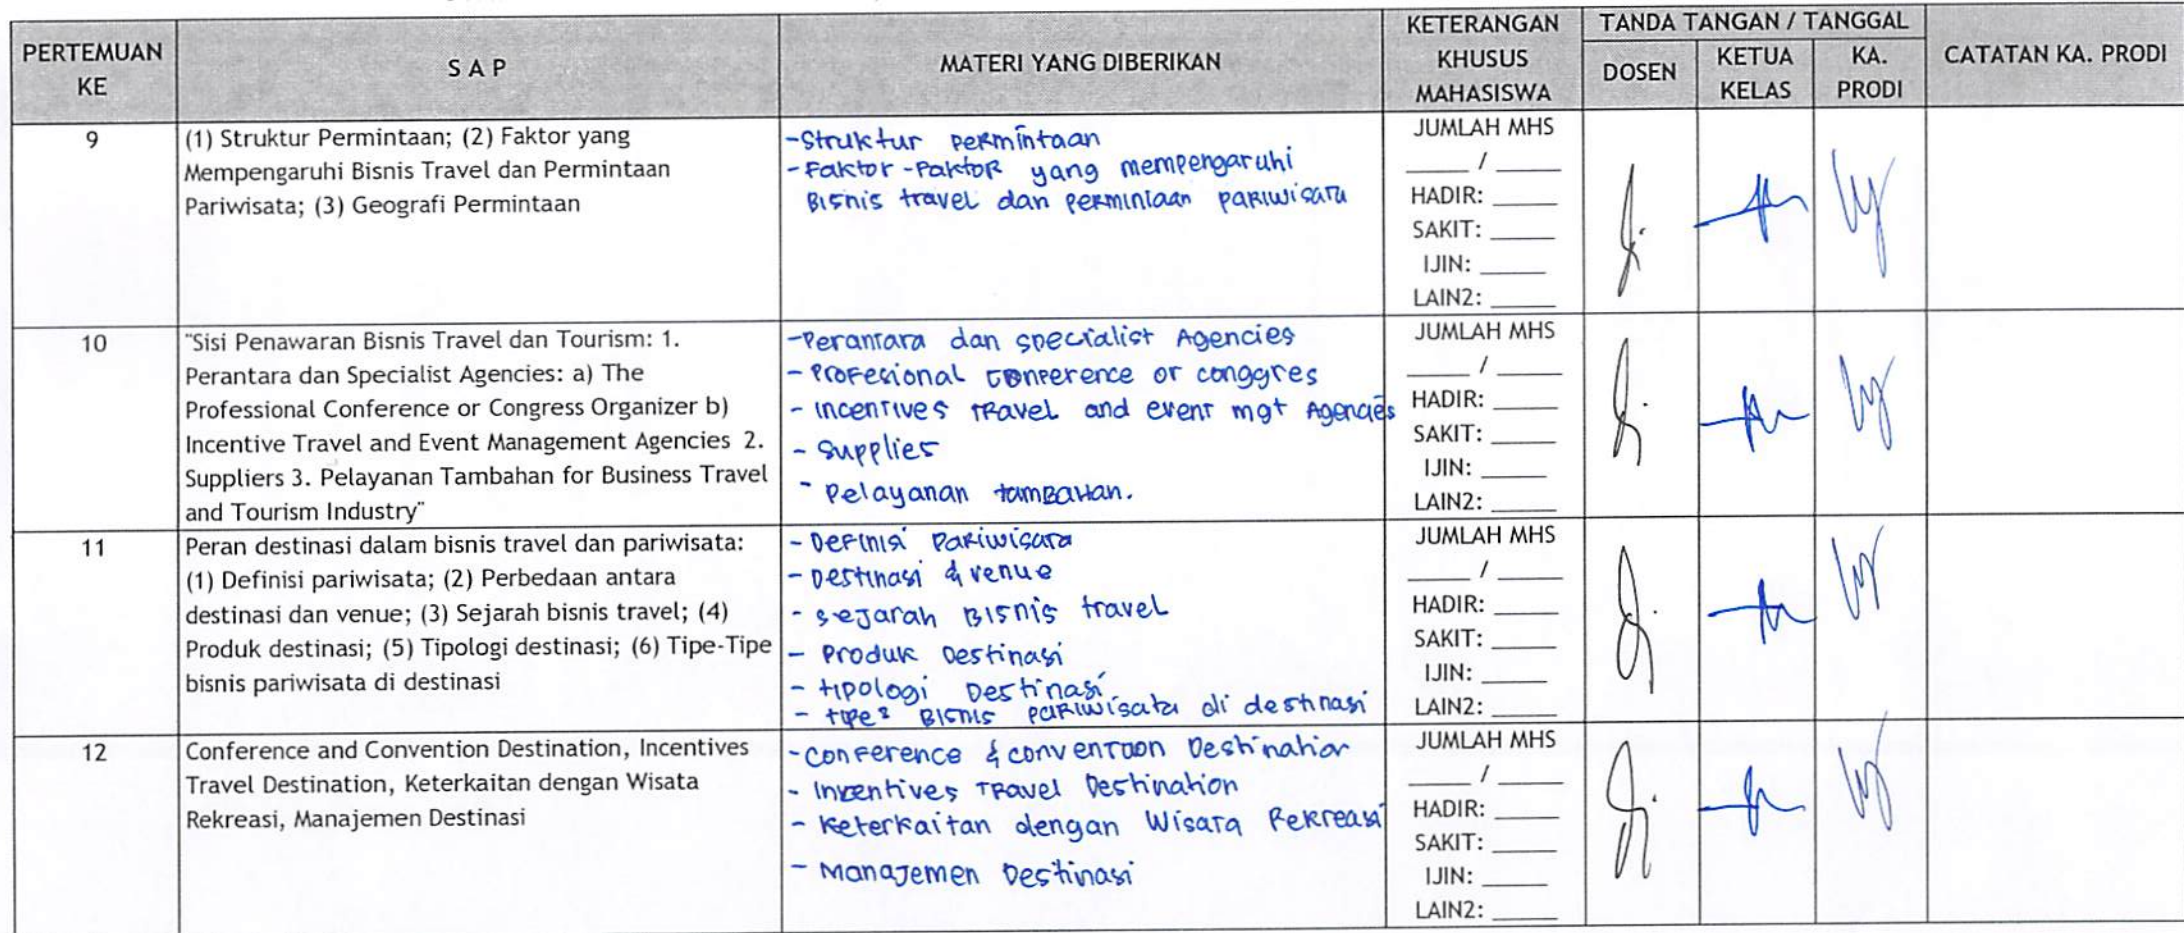 PERTEMUAN KE
S A P
MATERI YANG DIBERIKAN
KETERANGAN KHUSUS MAHASISWA
TANDA TANGAN / TANGGAL
DOSEN
KETUA KELAS
KA. PRODI
CATATAN KA. PRODI
9
(1) Struktur Permintaan; (2) Faktor yang
Mempengaruhi Bisnis Travel dan Permintaan
Pariwisata; (3) Geografi Permintaan
- Struktur Permintaan
- Faktor-Faktor yang mempengaruhi
Bisnis travel dan permintaan pariwisata
JUMLAH MHS
____ / ____
HADIR: ____
SAKIT: ____
IJIN: ____
LAIN2: ____
10
"Sisi Penawaran Bisnis Travel dan Tourism: 1.
Perantara dan Specialist Agencies: a) The
Professional Conference or Congress Organizer b)
Incentive Travel and Event Management Agencies 2.
Suppliers 3. Pelayanan Tambahan for Business Travel
and Tourism Industry"
- Perantara dan specialist Agencies
- Profesional conference or conggres
- Incentives Travel and event mgt Agencies
- Supplies
- Pelayanan tambahan.
JUMLAH MHS
____ / ____
HADIR: ____
SAKIT: ____
IJIN: ____
LAIN2: ____
11
Peran destinasi dalam bisnis travel dan pariwisata:
(1) Definisi pariwisata; (2) Perbedaan antara
destinasi dan venue; (3) Sejarah bisnis travel; (4)
Produk destinasi; (5) Tipologi destinasi; (6) Tipe-Tipe
bisnis pariwisata di destinasi
- Definisi Pariwisata
- Destinasi & venue
- Sejarah Bisnis travel
- Produk Destinasi
- tipologi Destinasi
- tipe2 Bisnis Pariwisata di destinasi
JUMLAH MHS
____ / ____
HADIR: ____
SAKIT: ____
IJIN: ____
LAIN2: ____
12
Conference and Convention Destination, Incentives
Travel Destination, Keterkaitan dengan Wisata
Rekreasi, Manajemen Destinasi
- Conference & convention Destination
- Incentives Travel Destination
- Keterkaitan dengan Wisata Rekreasi
- Manajemen Destinasi
JUMLAH MHS
____ / ____
HADIR: ____
SAKIT: ____
IJIN: ____
LAIN2: ____